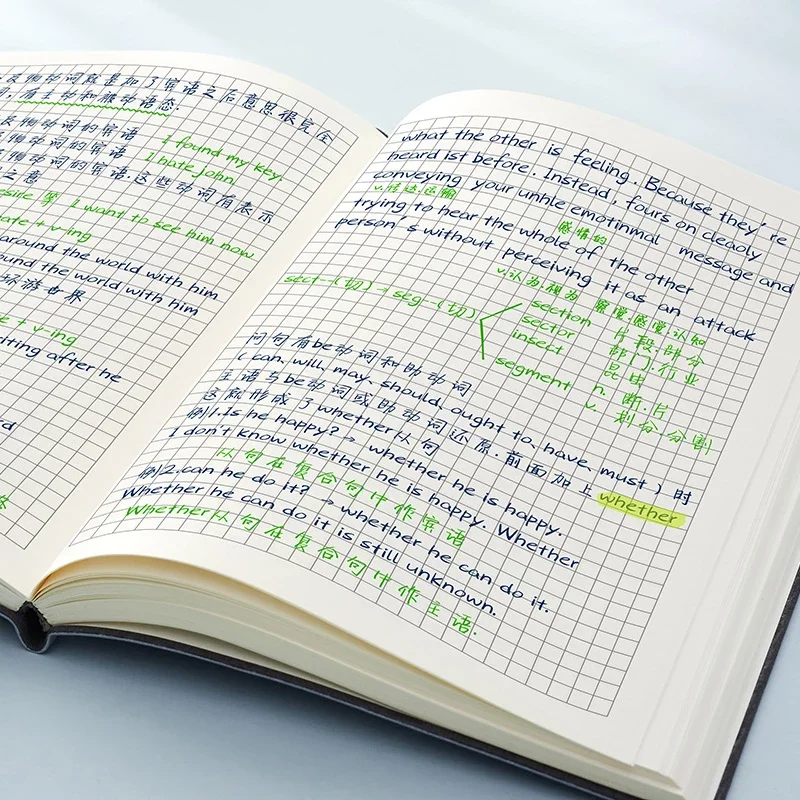 及物动词就是加了宾语之后意思很完全
有主动和被动语态.
及物动词的宾语
I found my key.
物动词的宾语
I hate John.
物动词的宾语.这些动词有表示
之意
I want to see him now
ate + v-ing
around the world with him
ound the world with him
环游世界
e + v-ing
iting after he
what the other is feeling. Because they're
heard ist before. Instead, fours on cleaoly
conveying your unhle emotinmal message and
v.传达.运输
感情的
trying to hear the whole of the other
person's without perceiving it as an attack
v.认为.视为 察觉.感觉.认知
sect-(切)→seg-(切)
section 片段.部分
sector 部门.行业
insect 昆虫
segment n. 断.片
v. 划分.分割
问句有be动词和助动词
( can, will, may, should, ought to, have, must ) 时
主语与be动词或助动词还原.前面加上 whether
这就形成了whether从句
例1.Is he happy? → whether he is happy.
I don't know whether he is happy. Whether
从句在复合句中作宾语
例2.can he do it? → whether he can do it.
Whether he can do it is still unknown.
Whether从句在复合句中作主语.